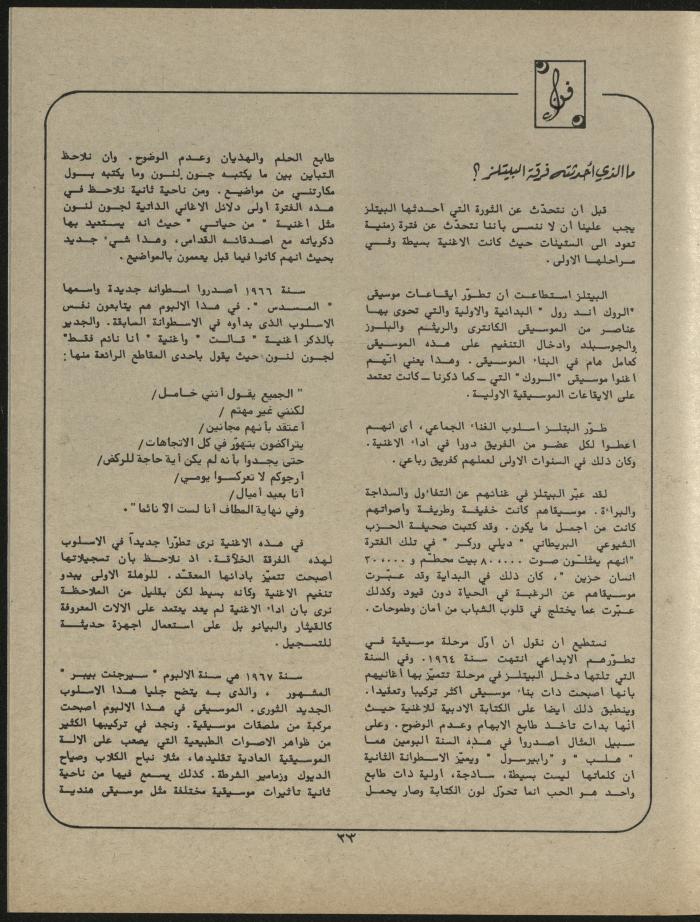 فن
ما الذي أحدثته فرقة البيتلز ؟
قبل ان نتحدّث عن الثورة التي احدثها البيتلز
يجب علينا أن لا ننسى بأننا نتحدّث عن فترة زمنية
تعود الى الستينات حيث كانت الاغنية بسيطة وفي
مراحلها الاولى .
البيتلز استطاعت أن تطوّر ايقاعات موسيقى
"الروك أند رول " البدائية والاولية والتي تحوى بها
عناصر من الموسيقى الكانترى والريثم والبلوز
والجوسبلد وادخال التنغيم على هذه الموسيقى
كعامل هام في البناء الموسيقى . وهذا يعني أنهم
أغنوا موسيقى "الروك" التي ــ كما ذكرنا ــ كانت تعتمد
على الايقاعات الموسيقية الاولية .
طوّر البتلز اسلوب الغناء الجماعي، أى انهم
أعطوا لكل عضو من الفريق دورا في اداء الاغنية .
وكان ذلك في السنوات الاولى لعملهم كفريق رباعي .
لقد عبّر البيتلز في غنائهم عن التفاءول والسذاجة
والبراءة . موسيقاهم كانت خفيفة وطريفة وأصواتهم
كانت من اجمل ما يكون . وقد كتبت صحيفة الحزب
الشيوعي البريطاني " ديلي وركر " في تلك الفترة
"انهم يمثلون صوت ٨٠،٠٠٠ بيت محطّم و ٣٠،٠٠٠
انسان حزين "، كان ذلك في البداية وقد عبّرت
موسيقاهم عن الرغبة في الحياة دون قيود وكذلك
عبّرت عما يختلج في قلوب الشباب من أمان وطموحات .
نستطيع ان نقول أن أوّل مرحلة موسيقية في
تطوّرهم الابداعي انتهت سنة ١٩٦٤. وفي السنة
التي تلتها دخل البيتلز في مرحلة تتميّز بها أغانيهم
بأنها أصبحت ذات بناء موسيقى أكثر تركيبا وتعقيدا .
وينطبق ذلك أيضا على الكتابة الادبية للاغنية حيث
أنها بدأت تأخذ طابع الابهام وعدم الوضوح . وعلى
سبيل المثال أصدروا في هذه السنة البومين هما
" هلب " و "رابيرسول " ويميّز الاسطوانة الثانية
أن كلماتها ليست بسيطة ، ساذجة، أولية ذات طابع
واحد هو الحب انما تحوّل لون الكتابة وصار يحمل
طابع الحلم والهذيان وعدم الوضوح . وان نلاحظ
التباين بين ما يكتبه جون لنون وما يكتبه بول
مكارتني من مواضيع . ومن ناحية ثانية نلاحظ في
هذه الفترة أولى دلائل الاغاني الذاتية لجون لنون
مثل أغنية " من حياتي " حيث أنه يستعيد بها
ذكرياته مع أصدقائه القدامى، وهذا شيء جديد
بحيث انهم كانوا فيما قبل يعممون بالمواضيع .
سنة ١٩٦٦ أصدروا اسطوانه جديدة واسمها
" المسدس ". في هذا الالبوم هم يتابعون نفس
الاسلوب الذى بدأوه في الاسطوانة السابقة . والجدير
بالذكر أغنية " قالت " وأغنية " أنا نائم فقط "
لجون لنون حيث يقول باحدى المقاطع الرائعة منها :
" الجميع يقول أنني خامل/
لكنني غير مهتم /
أعتقد بأنهم مجانين/
يتراكضون بتهوّر في كل الاتجاهات/
حتى يجدوا بأنه لم يكن أية حاجة للركض/
أرجوكم لا تعركسوا يومي/
أنا بعيد أميال/
وفي نهاية المطاف أنا لست الاّ نائما ".
في هذه الاغنية نرى تطوّرا جديداً في الاسلوب
لهذه الفرقة الخلاّقة . اذ نلاحظ بأن تسجيلاتها
أصبحت تتميّز بأدائها المعقد . للوهلة الاولى يبدو
تنغيم الاغنية وكأنه بسيط لكن بقليل من الملاحظة
نرى بأن اداء الاغنية لم يعد يعتمد على الالات المعروفة
كالقيثار والبيانو بل على استعمال اجهزة حديثة
للتسجيل .
سنة ١٩٦٧ هي سنة الالبوم " سيرجنت بيبر "
المشهور ، والذى به يتضح جليا هذا الاسلوب
الجديد الثورى . الموسيقى في هذا الالبوم أصبحت
مركبة من ملصقات موسيقية . ونجد في تركيبها الكثير
من ظواهر الاصوات الطبيعية التي يصعب على الالة
الموسيقية العادية تقليدها، مثلا نباح الكلاب وصياح
الديوك وزمامير الشرطة . كذلك يسمع فيها من ناحية
ثانية تأثيرات موسيقية مختلفة مثل موسيقى هندية
٣٣